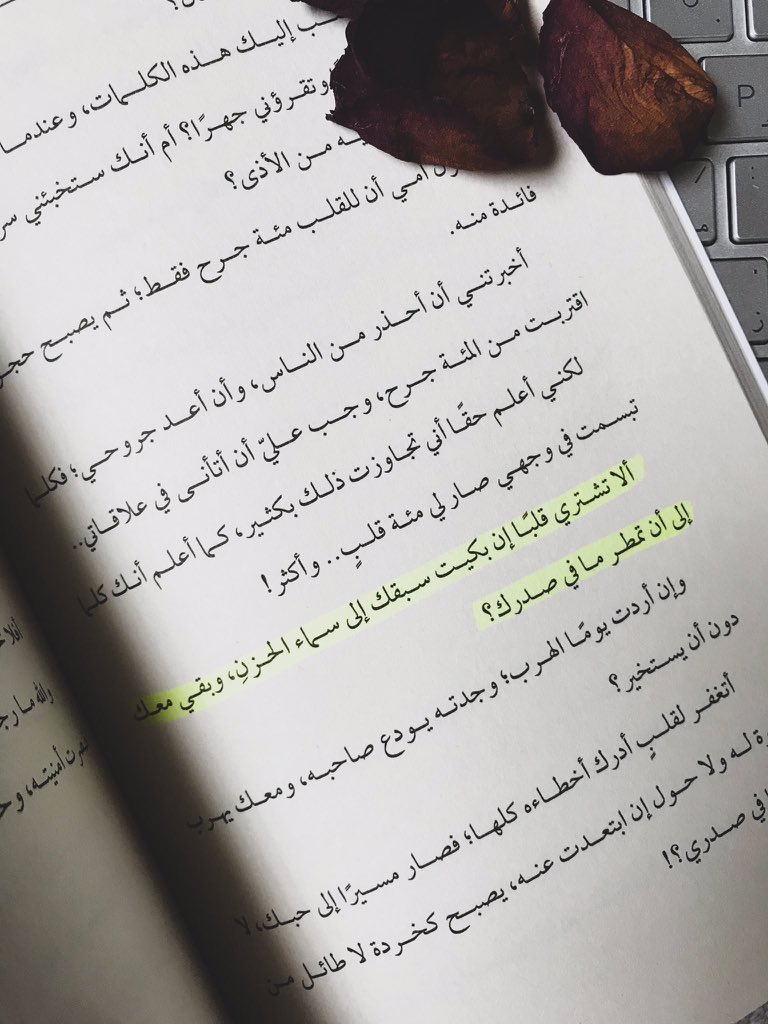 إليك هذه الكلمات، وعندما
وتقرؤني جهرًا؟ أم أنك ستخبئني
من الأذى؟
أمي أن للقلب مئة جرح فقط؛ ثم يصبح
فائدة منه.
أخبرتني أن أحذر من الناس، وأن أعد جروحي؛ فكلما
اقتربت من المئة جرح، وجب عليّ أن أتأنى في علاقاتي..
لكنني أعلم حقًا أني تجاوزت ذلك بكثير، كما أعلم أنك كلما
تبسمت في وجهي صار لي مئة قلبٍ.. وأكثر!
ألا تشتري قلبًا إن بكيت سبقك إلى سماء الحزنِ، وبقي معك
إلى أن تمطر ما في صدرك؟
وإن أردت يومًا الهرب؛ وجدته يودع صاحبه، ومعك يهرب
دون أن يستخير؟
أتغفر لقلبٍ أدرك أخطاءه كلها؛ فصار مسيرًا إلى حبك، لا
له ولا حول إن ابتعدت عنه، يصبح كخردة لا طائل من
في صدري؟!
والله ما
أمنيته،
P